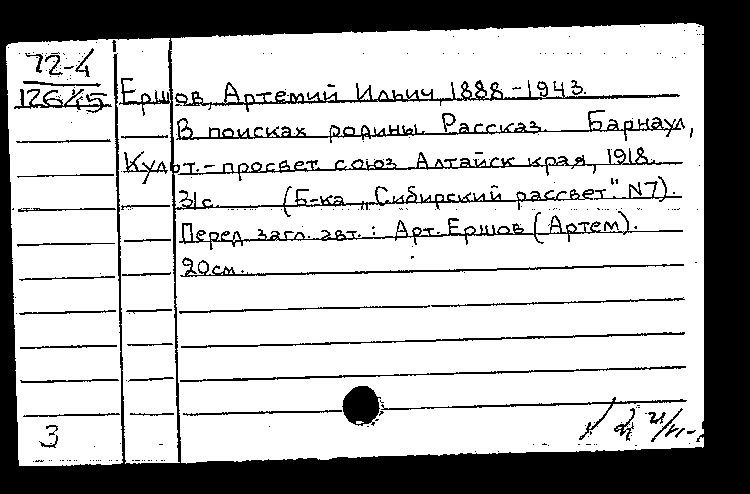 72-4
12645
Ершов, Артемий Ильич, 1888-1943.
В поисках родины. Рассказ. Барнаул,
Культ.-просвет. союз Алтайск края, 1918.
31с. (Б-ка „Сибирский рассвет". N7).
Перед загл. авт.: Арт. Ершов (Артем).
20см.
3